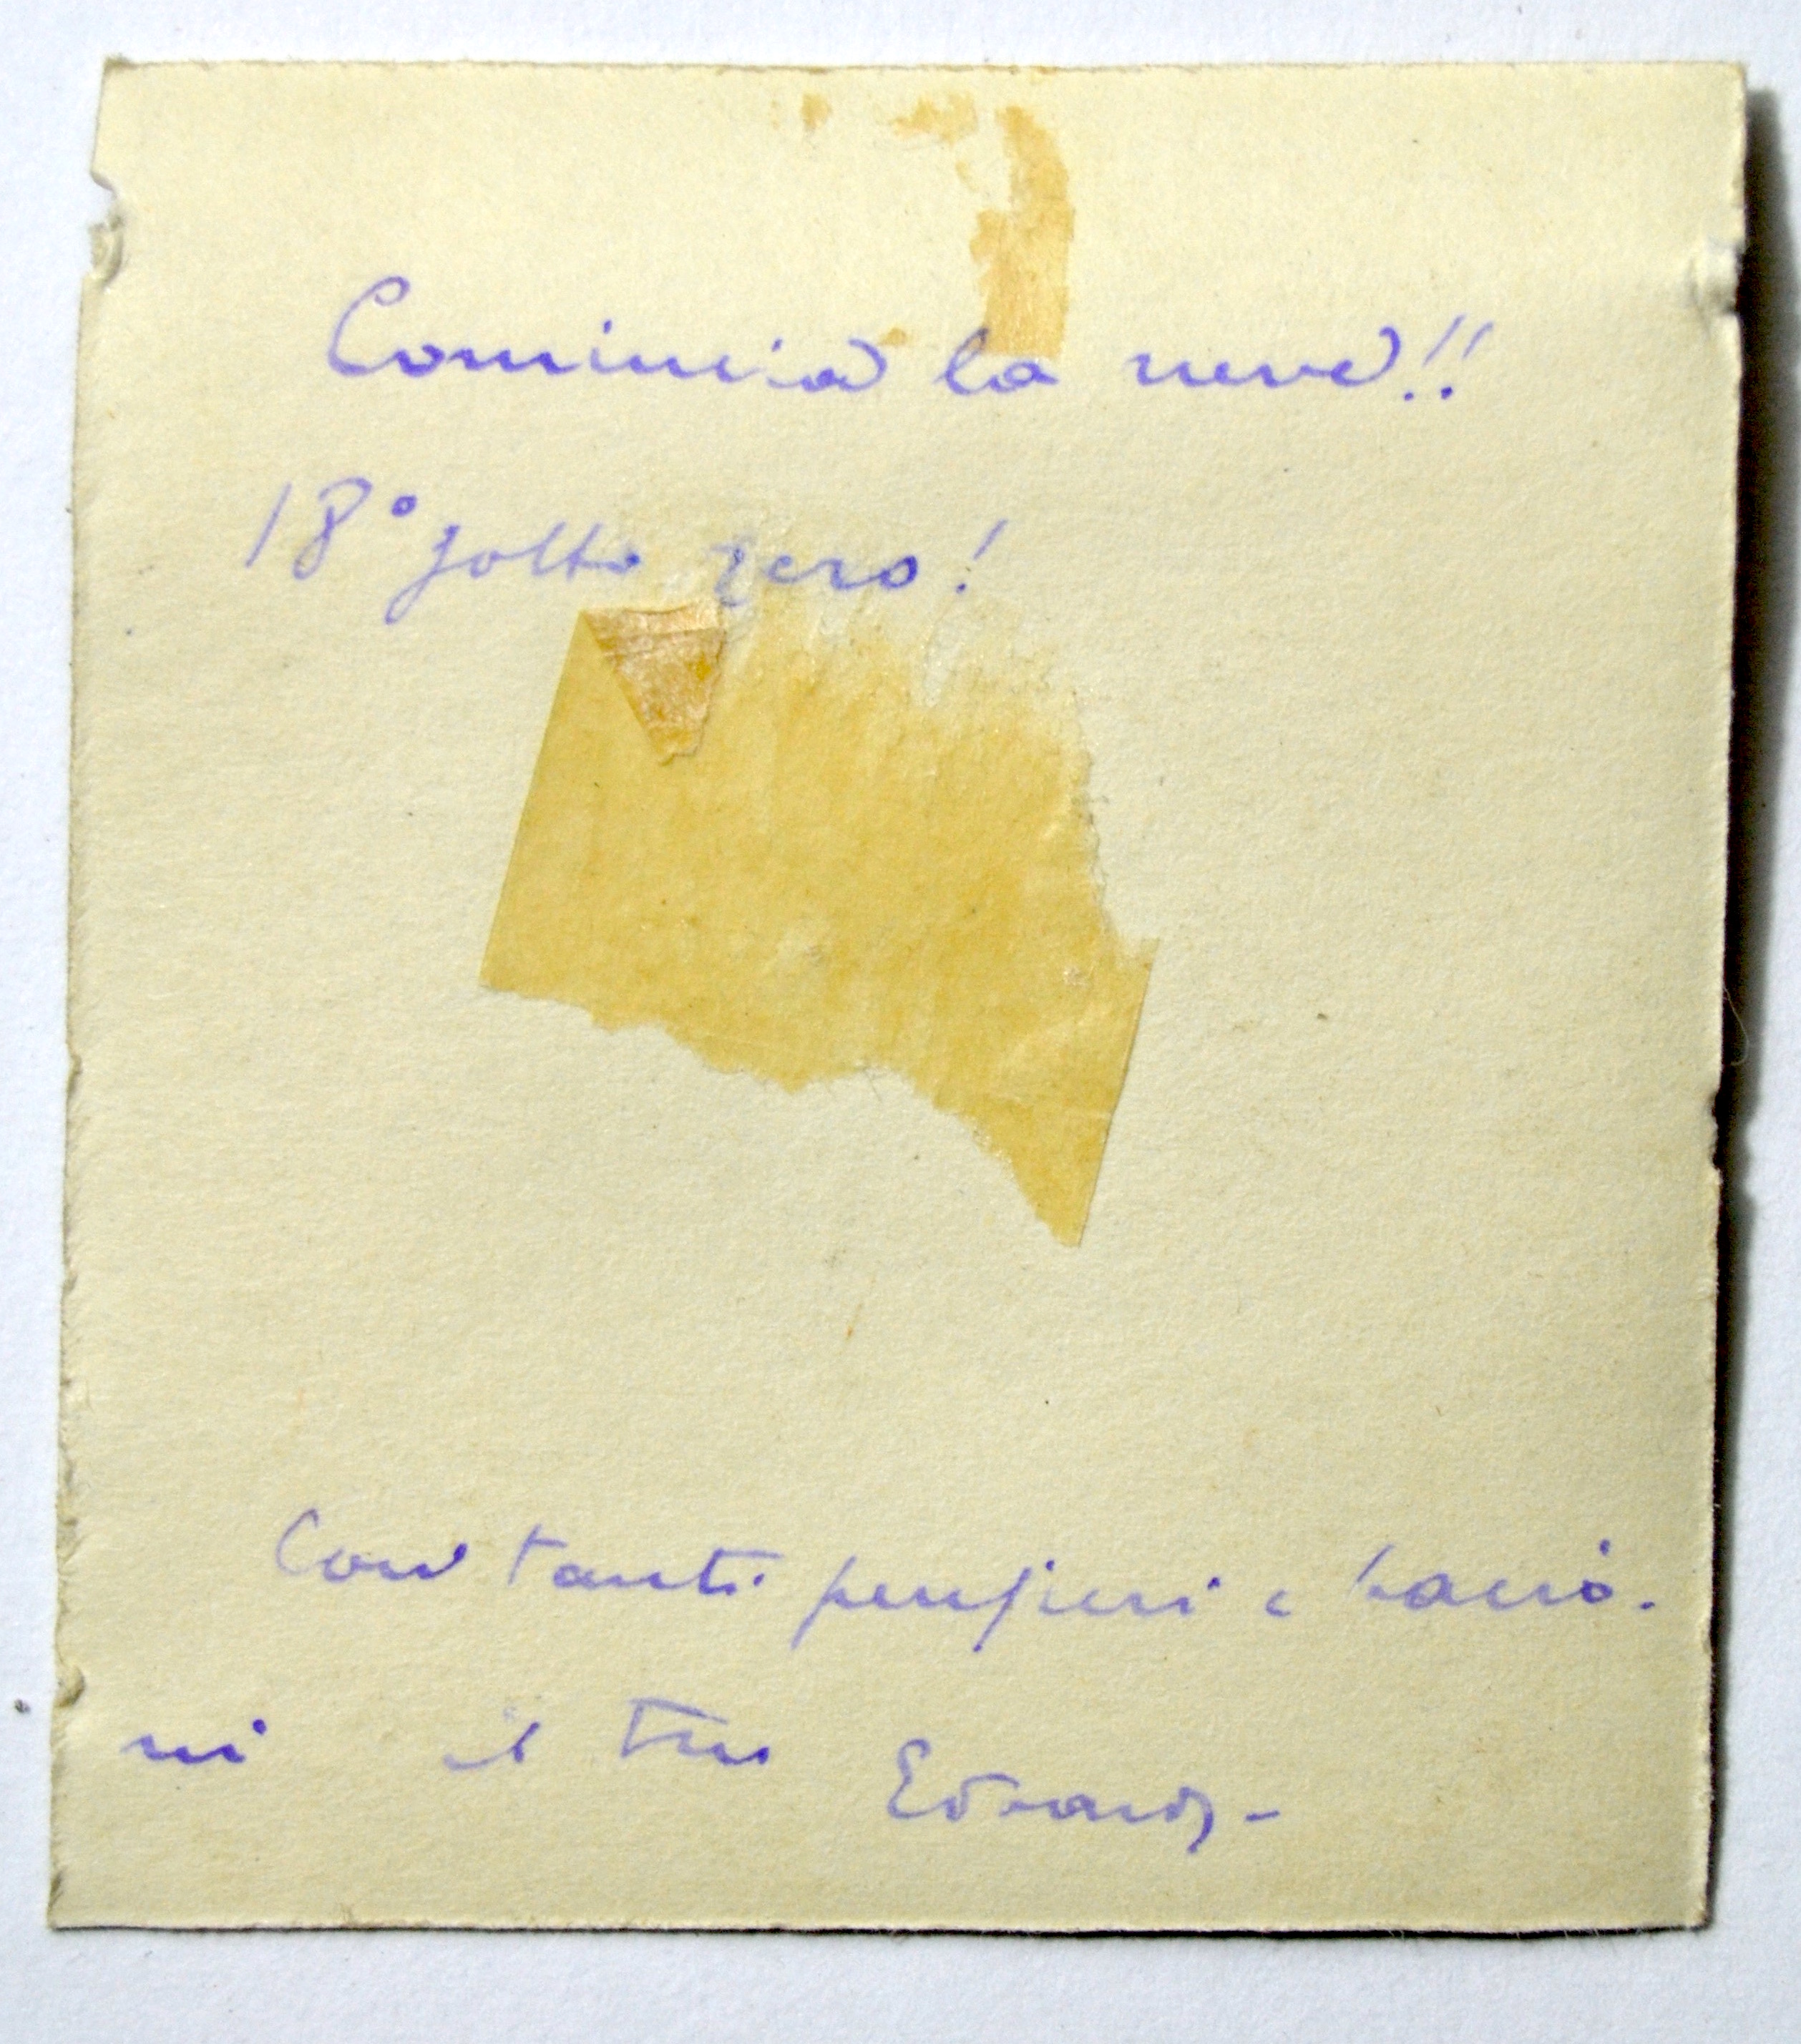 Comincia la neve!!
18° sotto zero!
Con tanti pensieri e bacio.
ni il tuo Edoardo -